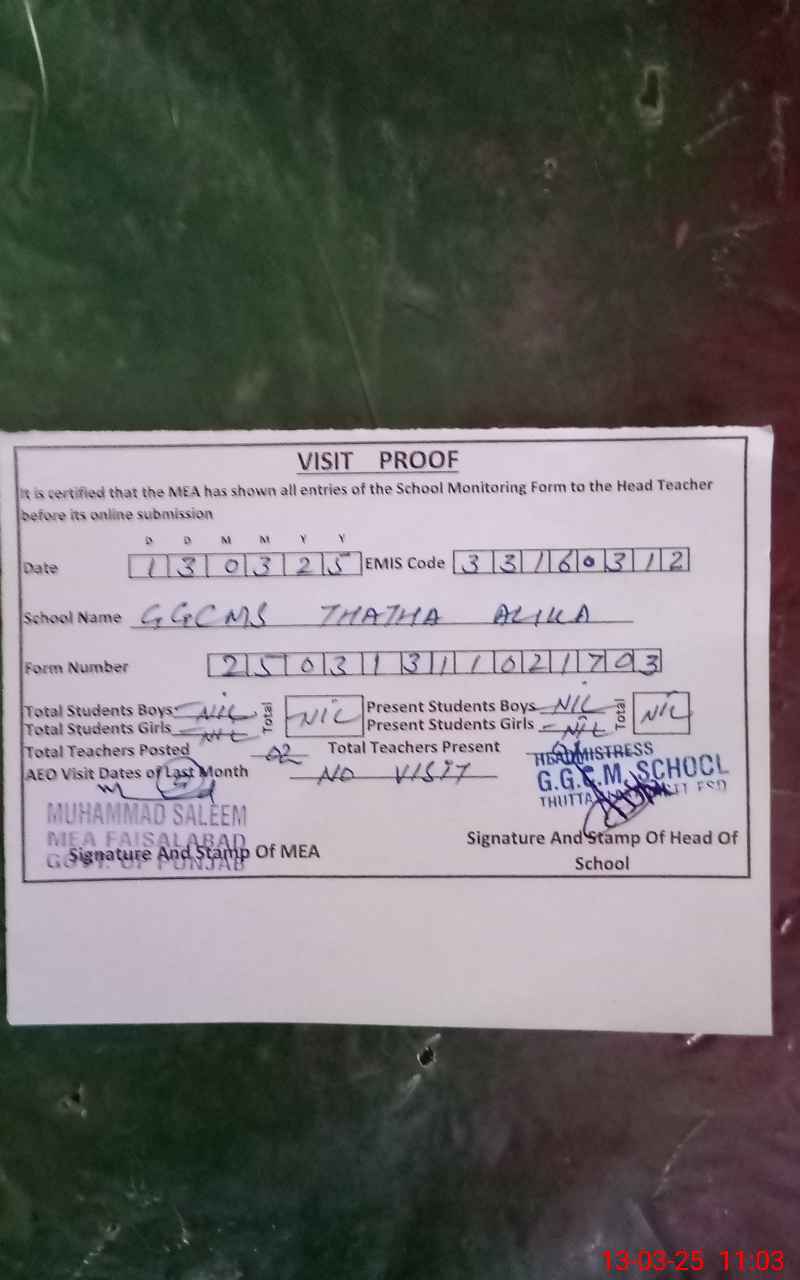 VISIT PROOF
It is certified that the MEA has shown all entries of the School Monitoring Form to the Head Teacher
before its online submission
D D M M Y Y
Date 1 3 0 3 2 5 EMIS Code 3 3 1 6 0 3 1 2
School Name GGCMS THATHA
Form Number 2 5 0 3 1 3 1 1 0 2 1 7 0 3
Total Students Boys NIL Total NIL Present Students Boys NIL Total NIL
Total Students Girls NIL Present Students Girls NIL
Total Teachers Posted 02 Total Teachers Present
AEO Visit Dates of Last Month NO VISIT
HEADMISTRESS
G.G.C.M. SCHOOL
MUHAMMAD SALEEM
MEA FAISALABAD
GOVT. OF PUNJAB
Signature And Stamp Of MEA
Signature And Stamp Of Head Of
School
13-03-25 11:03